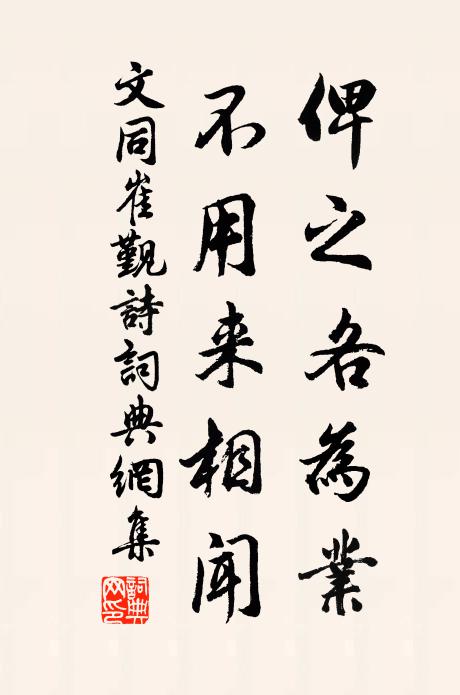 俾之各為業
不用来相聞
文同崔觀詩詞典網集
詞典網印